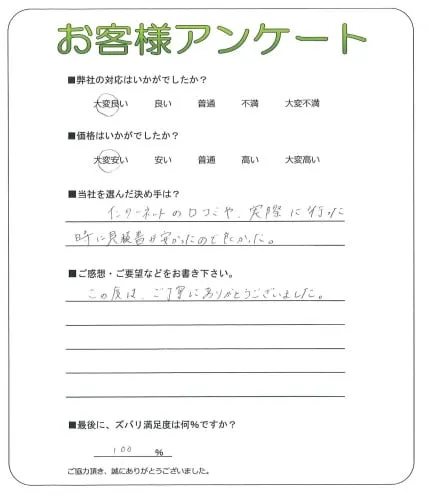 お客様アンケート
■弊社の対応はいかがでしたか?
大変良い 良い 普通 不満 大変不満
■価格はいかがでしたか?
大変安い 安い 普通 高い 大変高い
■当社を選んだ決め手は?
インターネットの口コミや、実際に行った
時に見積書が安かったので良かった。
■ご感想・ご要望などをお書き下さい。
この度は、ご丁寧にありがとうございました。
■最後に、ズバリ満足度は何%ですか?
100 %
ご協力頂き、誠にありがとうございました。